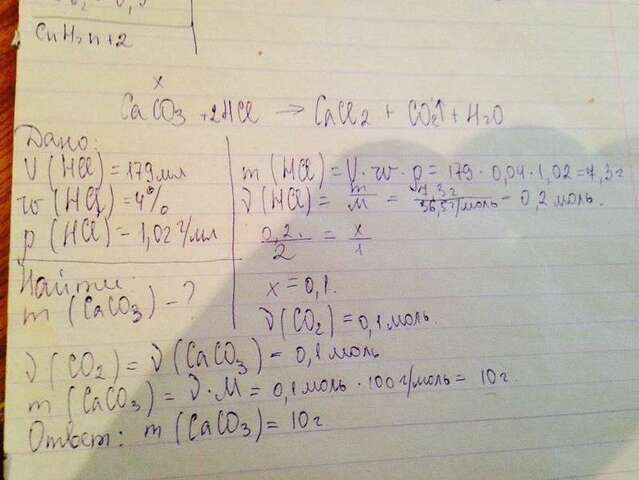 CnH2n+2
x
CaCO3 + 2HCl → CaCl2 + CO2↑ + H2O
Дано:
V (HCl) = 179 мл
w (HCl) = 4%
ρ (HCl) = 1,02 г/мл
Найти:
m (CaCO3) - ?
m (HCl) = V · w · ρ = 179 · 0,04 · 1,02 = 7,3 г
ν (HCl) = m/M = 7,3 г/36,5 г/моль = 0,2 моль.
0,2/2 = x/1
x = 0,1.
ν (CO2) = 0,1 моль.
ν (CO2) = ν (CaCO3) = 0,1 моль
m (CaCO3) = ν · M = 0,1 моль · 100 г/моль = 10 г.
Ответ: m (CaCO3) = 10 г